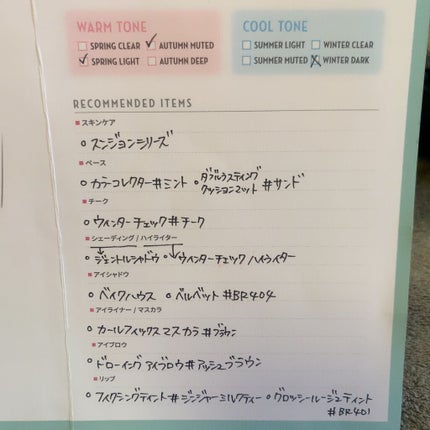 WARM TONE
SPRING CLEAR ✓ AUTUMN MUTED
✓ SPRING LIGHT AUTUMN DEEP
COOL TONE
SUMMER LIGHT WINTER CLEAR
SUMMER MUTED ✗ WINTER DARK
RECOMMENDED ITEMS
スキンケア
スンジョンシリーズ
ベース
カラーコレクター#ミント ダブルラスティング
クッションマット #サンド
チーク
ウィンターチェック#チーク
シェーディング / ハイライター
ジェントルシャドウ ウィンターチェックハイライター
アイシャドウ
ベイクハウス ベルベット #BR404
アイライナー / マスカラ
カールフィックスマスカラ #ブラウン
アイブロウ
ドローイングアイブロウ#アッシュブラウン
リップ
フィクシングティント#ジンジャーミルクティー グロッシールージュティント
#BR401